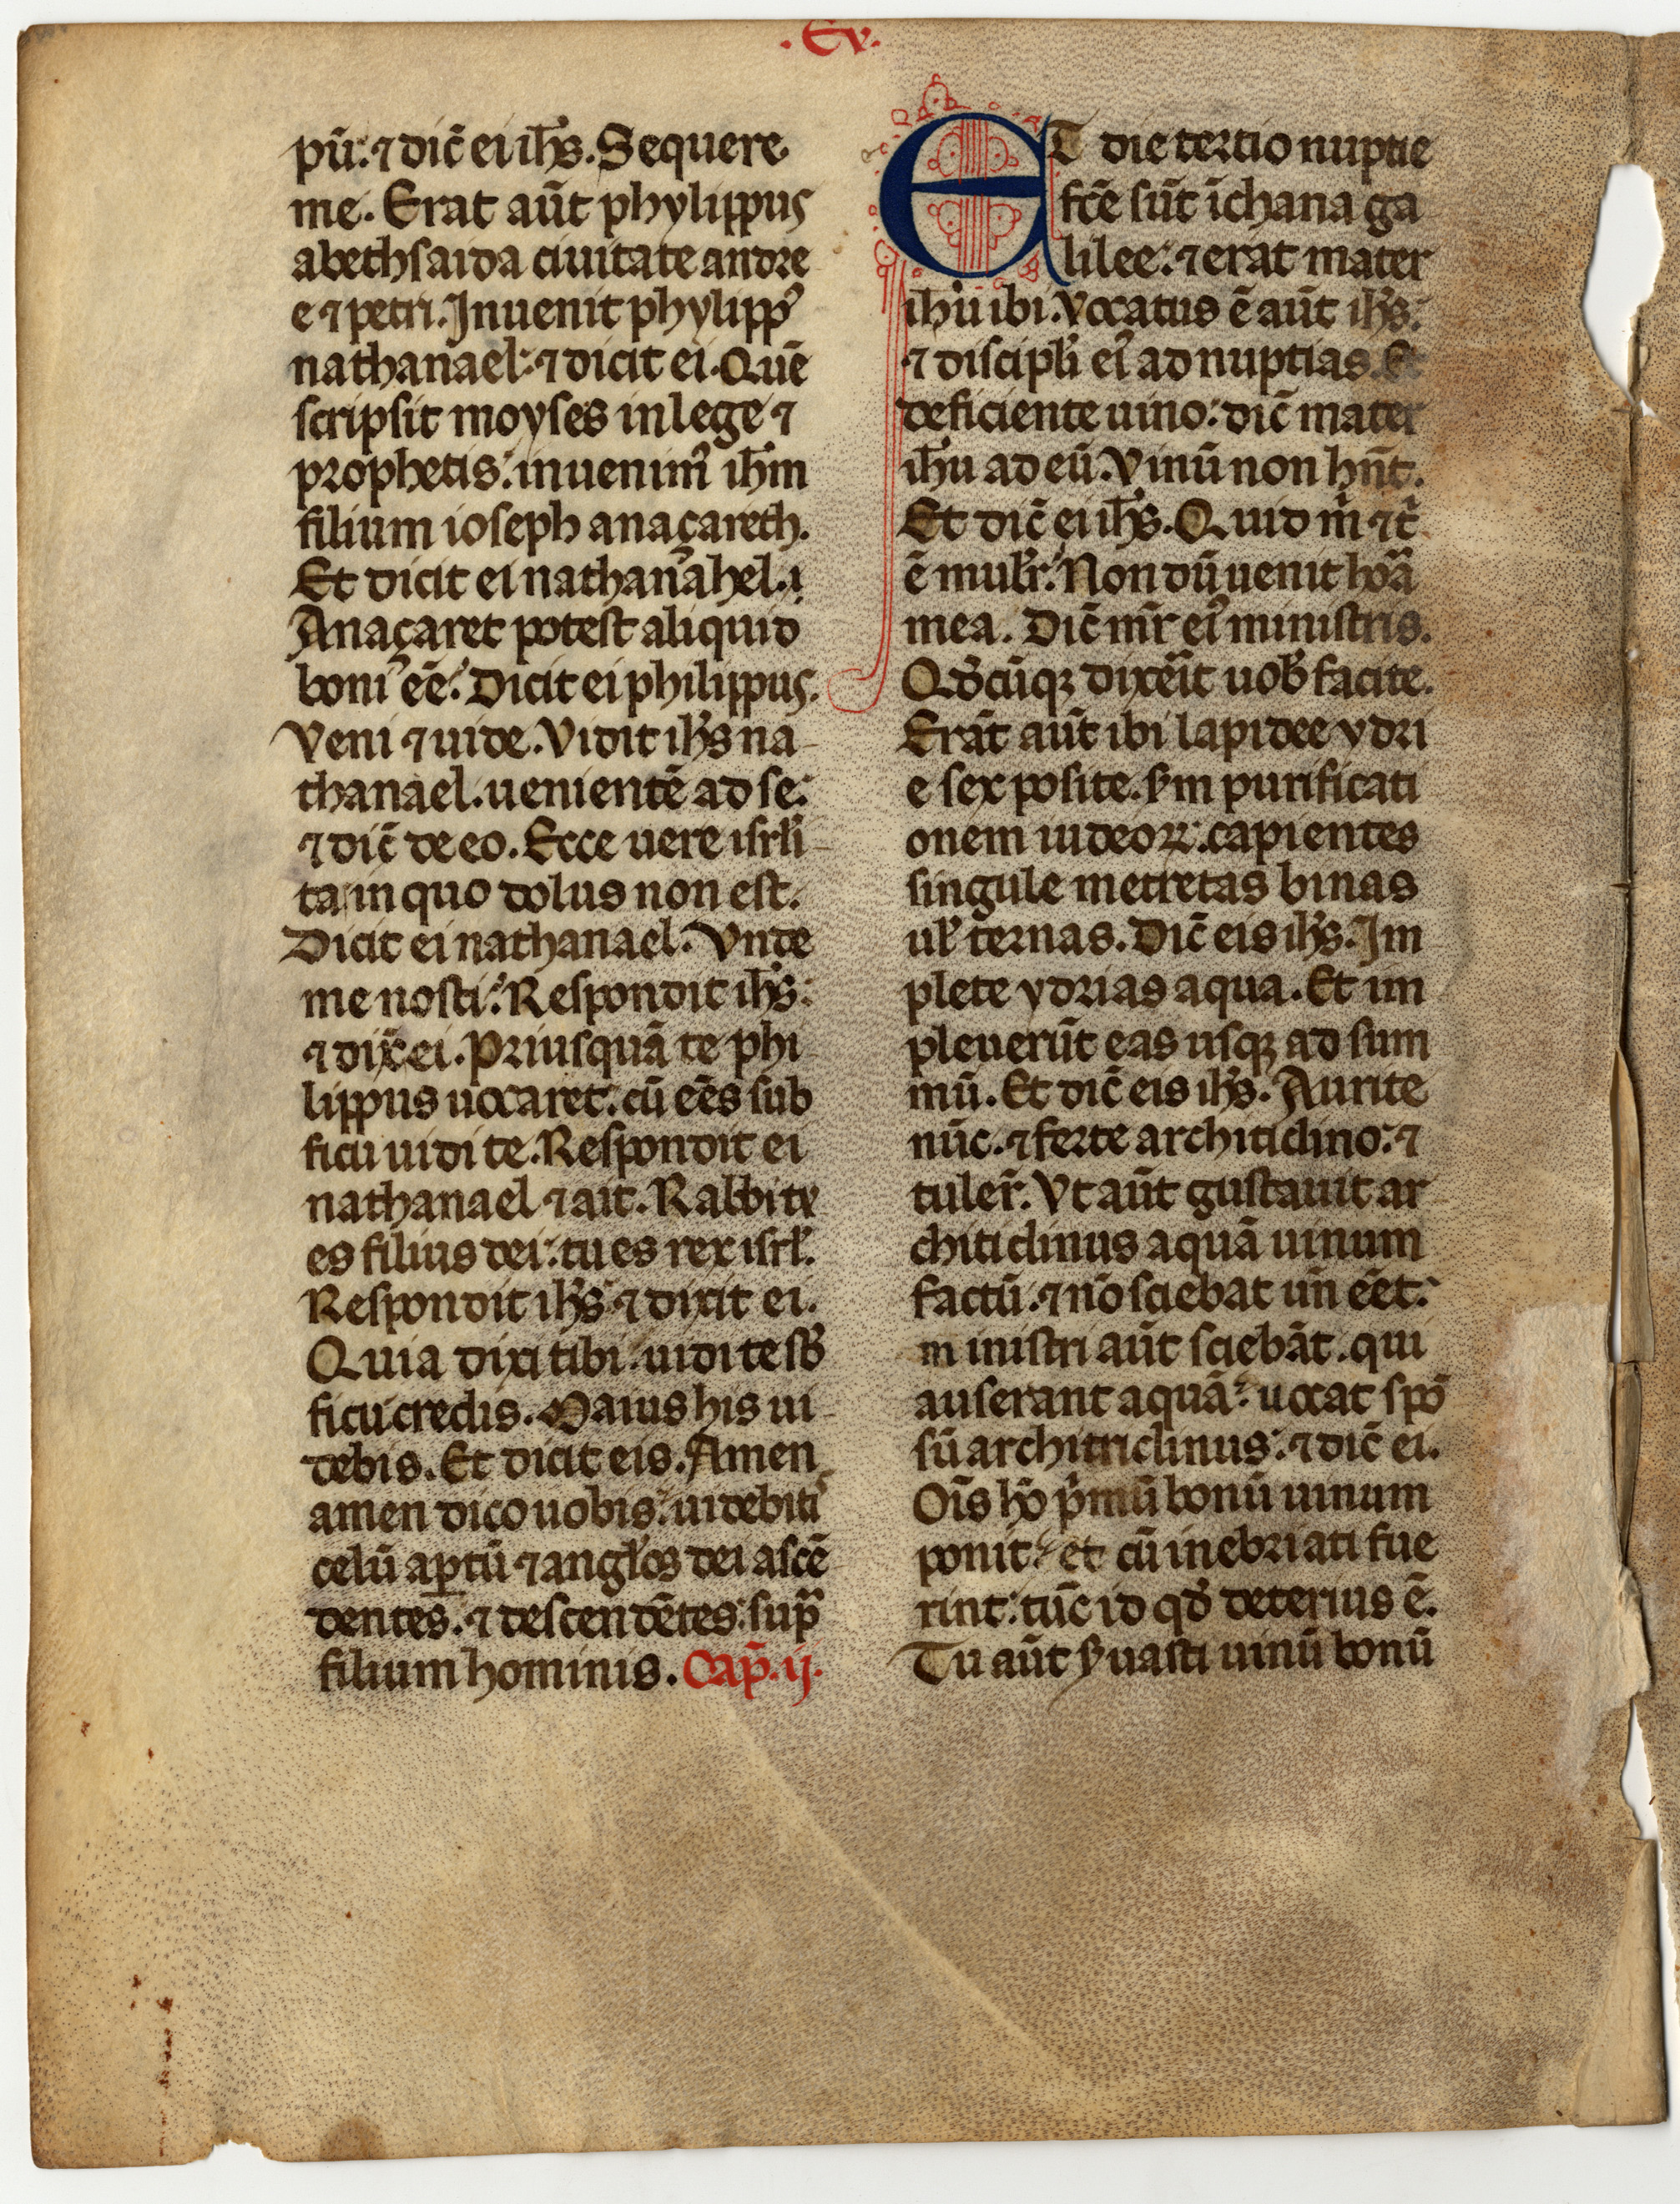 .Ev.
pū: ⁊ dic̄ ei ih̄s. Sequere
me. Erat aūt phylippus
abethsaida ciuitate andre
e ⁊ petri. Inuenit phylipp᷒
nathanael: ⁊ dicit ei. Quē
scripsit moyses in lege ⁊
prophetis: inuenim᷒ ih̄m
filium ioseph anaçareth.
Et dicit ei nathanahel.
Anaçaret potest aliquid
boni ēē: Dicit ei philippus.
Veni ⁊ uide. Vidit ih̄s na
thanael. uenientē ad se:
⁊ dic̄ de eo. Ecce uere isrł̄i
ta in quo dolus non est.
Dicit ei nathanael. Vnde
me nosti: Respondit ih̄s:
⁊ dix̄ ei. Priusquā te phi
lippus uocaret: cū eēs sub
ficu uidi te. Respondit ei
nathanael ⁊ ait. Rabbi tu
es filius dei: tu es rex isrł̄.
Respondit ih̄s ⁊ dixit ei.
Quia dixi tibi: uidi te sb̄
ficu credis. Maius his ui
debis. Et dicit eis. Amen
amen dico uobis: uidebiti᷒
celū aꝑtū ⁊ angłos dei ascē
dentes. ⁊ descendētes: supᷓ
filium hominis. Cap̄. ij.
ET die tertio nuptie
fc̄e sūt ī chana ga
lilee: ⁊ erat mater
ih̄u ibi. Vocatus ē aūt ih̄s:
⁊ discipłi ei᷒ ad nuptias. Et
deficiente uino: dic̄ mater
ih̄u ad eū. Vinū non hn̄t.
Et dic̄ ei ih̄s. Quid m̊ ⁊ t̊
ē mulr̄. Non dū uenit horᷓ
mea. Dic̄ mr̄ ei᷒ ministris.
Qd̄cūqꝫ dixerit uob̄ facite.
Erāt aūt ibi lapidee ydri
e sex posite. s̄m purificati
onem iudeoꝝ: capientes
singule metretas binas
uł ternas. Dic̄ eis ih̄s. Im
plete ydrias aqua. Et im
pleuerūt eas usqꝫ ad sum
mū. Et dic̄ eis ih̄s. Aurite
nūc. ⁊ ferte architiclino: ⁊
tuler̄. Vt aūt gustauit ar
chiticlinus aquā uinum
factū. ⁊ nō sciebat un̄ eēt:
ministri aūt sciebāt. qui
auserant aquā: uocat spō
sū architriclinus: ⁊ dic̄ ei.
Oīs hō p̊mū bonū uinum
ponit: et cū inebriati fue
rint: tūc id qd̄ deterius ē.
Tu aūt s̄uasti uinū bonū